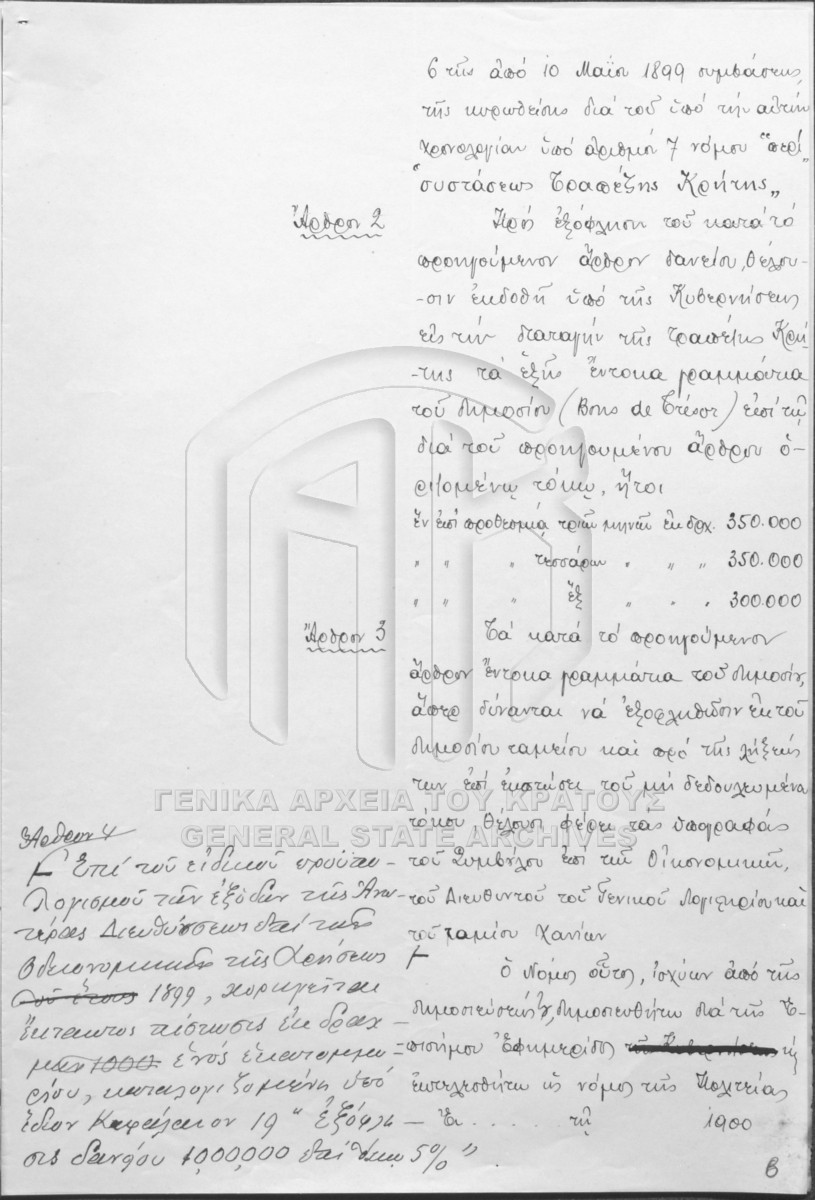 6 τῆς ἀπό 10 Μαΐου 1899 συμβάσεως,
τῆς κυρωθείσης διά τοῦ ὑπό τήν αὐτήν
χρονολογίαν ὑπό ἀριθμόν 7 νόμου "περί
"συστάσεως Τραπέζης Κρήτης„
Ἄρθρον 2
Πρός ἐξόφλησιν τοῦ κατά τό
προηγούμενον ἄρθρον δανείου, θέλου-
-σιν ἐκδοθῆ ὑπό τῆς Κυβερνήσεως
εἰς τήν διαταγήν τῆς Τραπέζης Κρή-
-της τά ἑξῆς ἔντοκα γραμμάτια
τοῦ δημοσίου (Bons de Trésor) ἐπί τῷ
διά τοῦ προηγουμένου ἄρθρου ὁ-
ριζομένῳ τόκῳ, ἤτοι
ἕν ἐπί προθεσμίᾳ τριῶν μηνῶν ἐκ δρχ. 350.000
„ „ „ τεσσάρων „ „ „ 350.000
„ „ „ ἕξ „ „ „ 300.000
Ἄρθρον 3
Τά κατά τό προηγούμενον
ἄρθρον ἔντοκα γραμμάτια τοῦ δημοσίου,
ἅπερ δύνανται νά ἐξοφληθῶσιν ἐκ τοῦ
δημοσίου ταμείου καί πρό τῆς λήξεώς
των ἐπί ἐκπτώσει τοῦ μή δεδουλευμένου
τόκου, θέλουσι φέρει τας ὑπογραφάς
τοῦ Συμβούλου ἐπί τῶν Οἰκονομικῶν,
τοῦ Διευθυντοῦ τοῦ Γενικοῦ Λογιστηρίου καί
τοῦ ταμίου Χανίων
Ἄρθρον 4
Ἐπί τοῦ εἰδικοῦ προϋπο-
λογισμοῦ τῶν ἐξόδων τῆς Ἀνω-
τέρας Διευθύνσεως ἐπί τῶν
Οἰκονομικῶν τῆς χρήσεως
τοῦ ἔτους 1899, χορηγεῖται
ἔκτακτος πίστωσις ἐκ δραχ-
μῶν 1000 ἑνός ἑκατομμυ-
ρίου, καταλογιζομένη ὑπό
ἴδιον Κεφάλαιον 19 "ἐξόφλη-
σις δανείου 1,000,000 ἐπί τόκῳ 5%".
ὁ Νόμος οὗτος, ἰσχύων ἀπό τῆς
δημοσιεύσεώς του, δημοσιευθήτω διά τῆς Ἐ-
πισήμου Ἐφημερίδος τῆς Κυβερνήσεως καί
ἐκτελεσθήτω ὡς νόμος τῆς Πολιτείας
Ἐν ...... τῇ 1900
6
ΓΕΝΙΚΑ ΑΡΧΕΙΑ ΤΟΥ ΚΡΑΤΟΥΣ
GENERAL STATE ARCHIVES